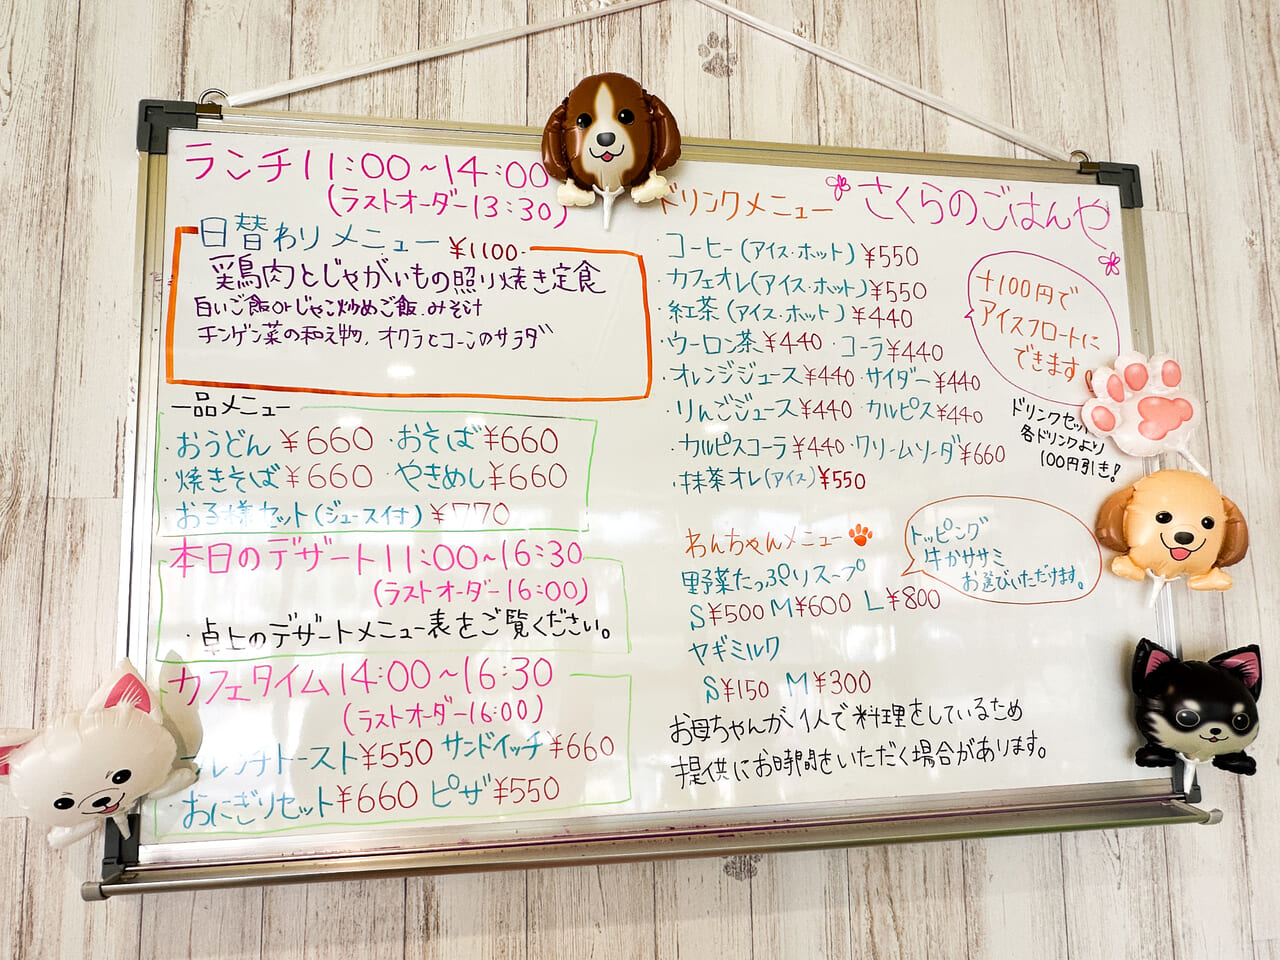 ランチ 11:00~14:00
(ラストオーダー13:30)
日替わりメニュー ¥1100-
彩鶏肉とじゃがいもの照り焼き定食
白いご飯orじゃこ炒めご飯、みそ汁
チンゲン菜の和え物、オクラとコーンのサラダ
一品メニュー
・おうどん ¥660 ・おそば ¥660
・焼きそば ¥660 やきめし ¥660
・お子様セット(ジュース付) ¥770
本日のデザート 11:00~16:30
(ラストオーダー16:00)
・卓上のデザートメニュー表をご覧ください。
カフェタイム 14:00~16:30
(ラストオーダー16:00)
フレンチトースト ¥550 サンドイッチ ¥660
・おにぎりセット ¥660 ピザ ¥550
さくらのごはんや
ドリンクメニュー
・コーヒー(アイス・ホット) ¥550
・カフェオレ(アイス・ホット) ¥550
・紅茶(アイス・ホット) ¥440
・ウーロン茶 ¥440 ・コーラ ¥440
・オレンジジュース ¥440 ・サイダー ¥440
・りんごジュース ¥440 カルピス ¥440
・カルピスコーラ ¥440 ・クリームソーダ ¥660
・抹茶オレ(アイス) ¥550
+100円で
アイスフロートに
できます。
ドリンクセット
各ドリンクより
100円引き!
わんちゃんメニュー
野菜たっぷりスープ
S ¥500 M ¥600 L ¥800
トッピング
牛かササミ
お選びいただけます。
ヤギミルク
S ¥150 M ¥300
お母ちゃんが1人で料理をしているため
提供にお時間をいただく場合があります。